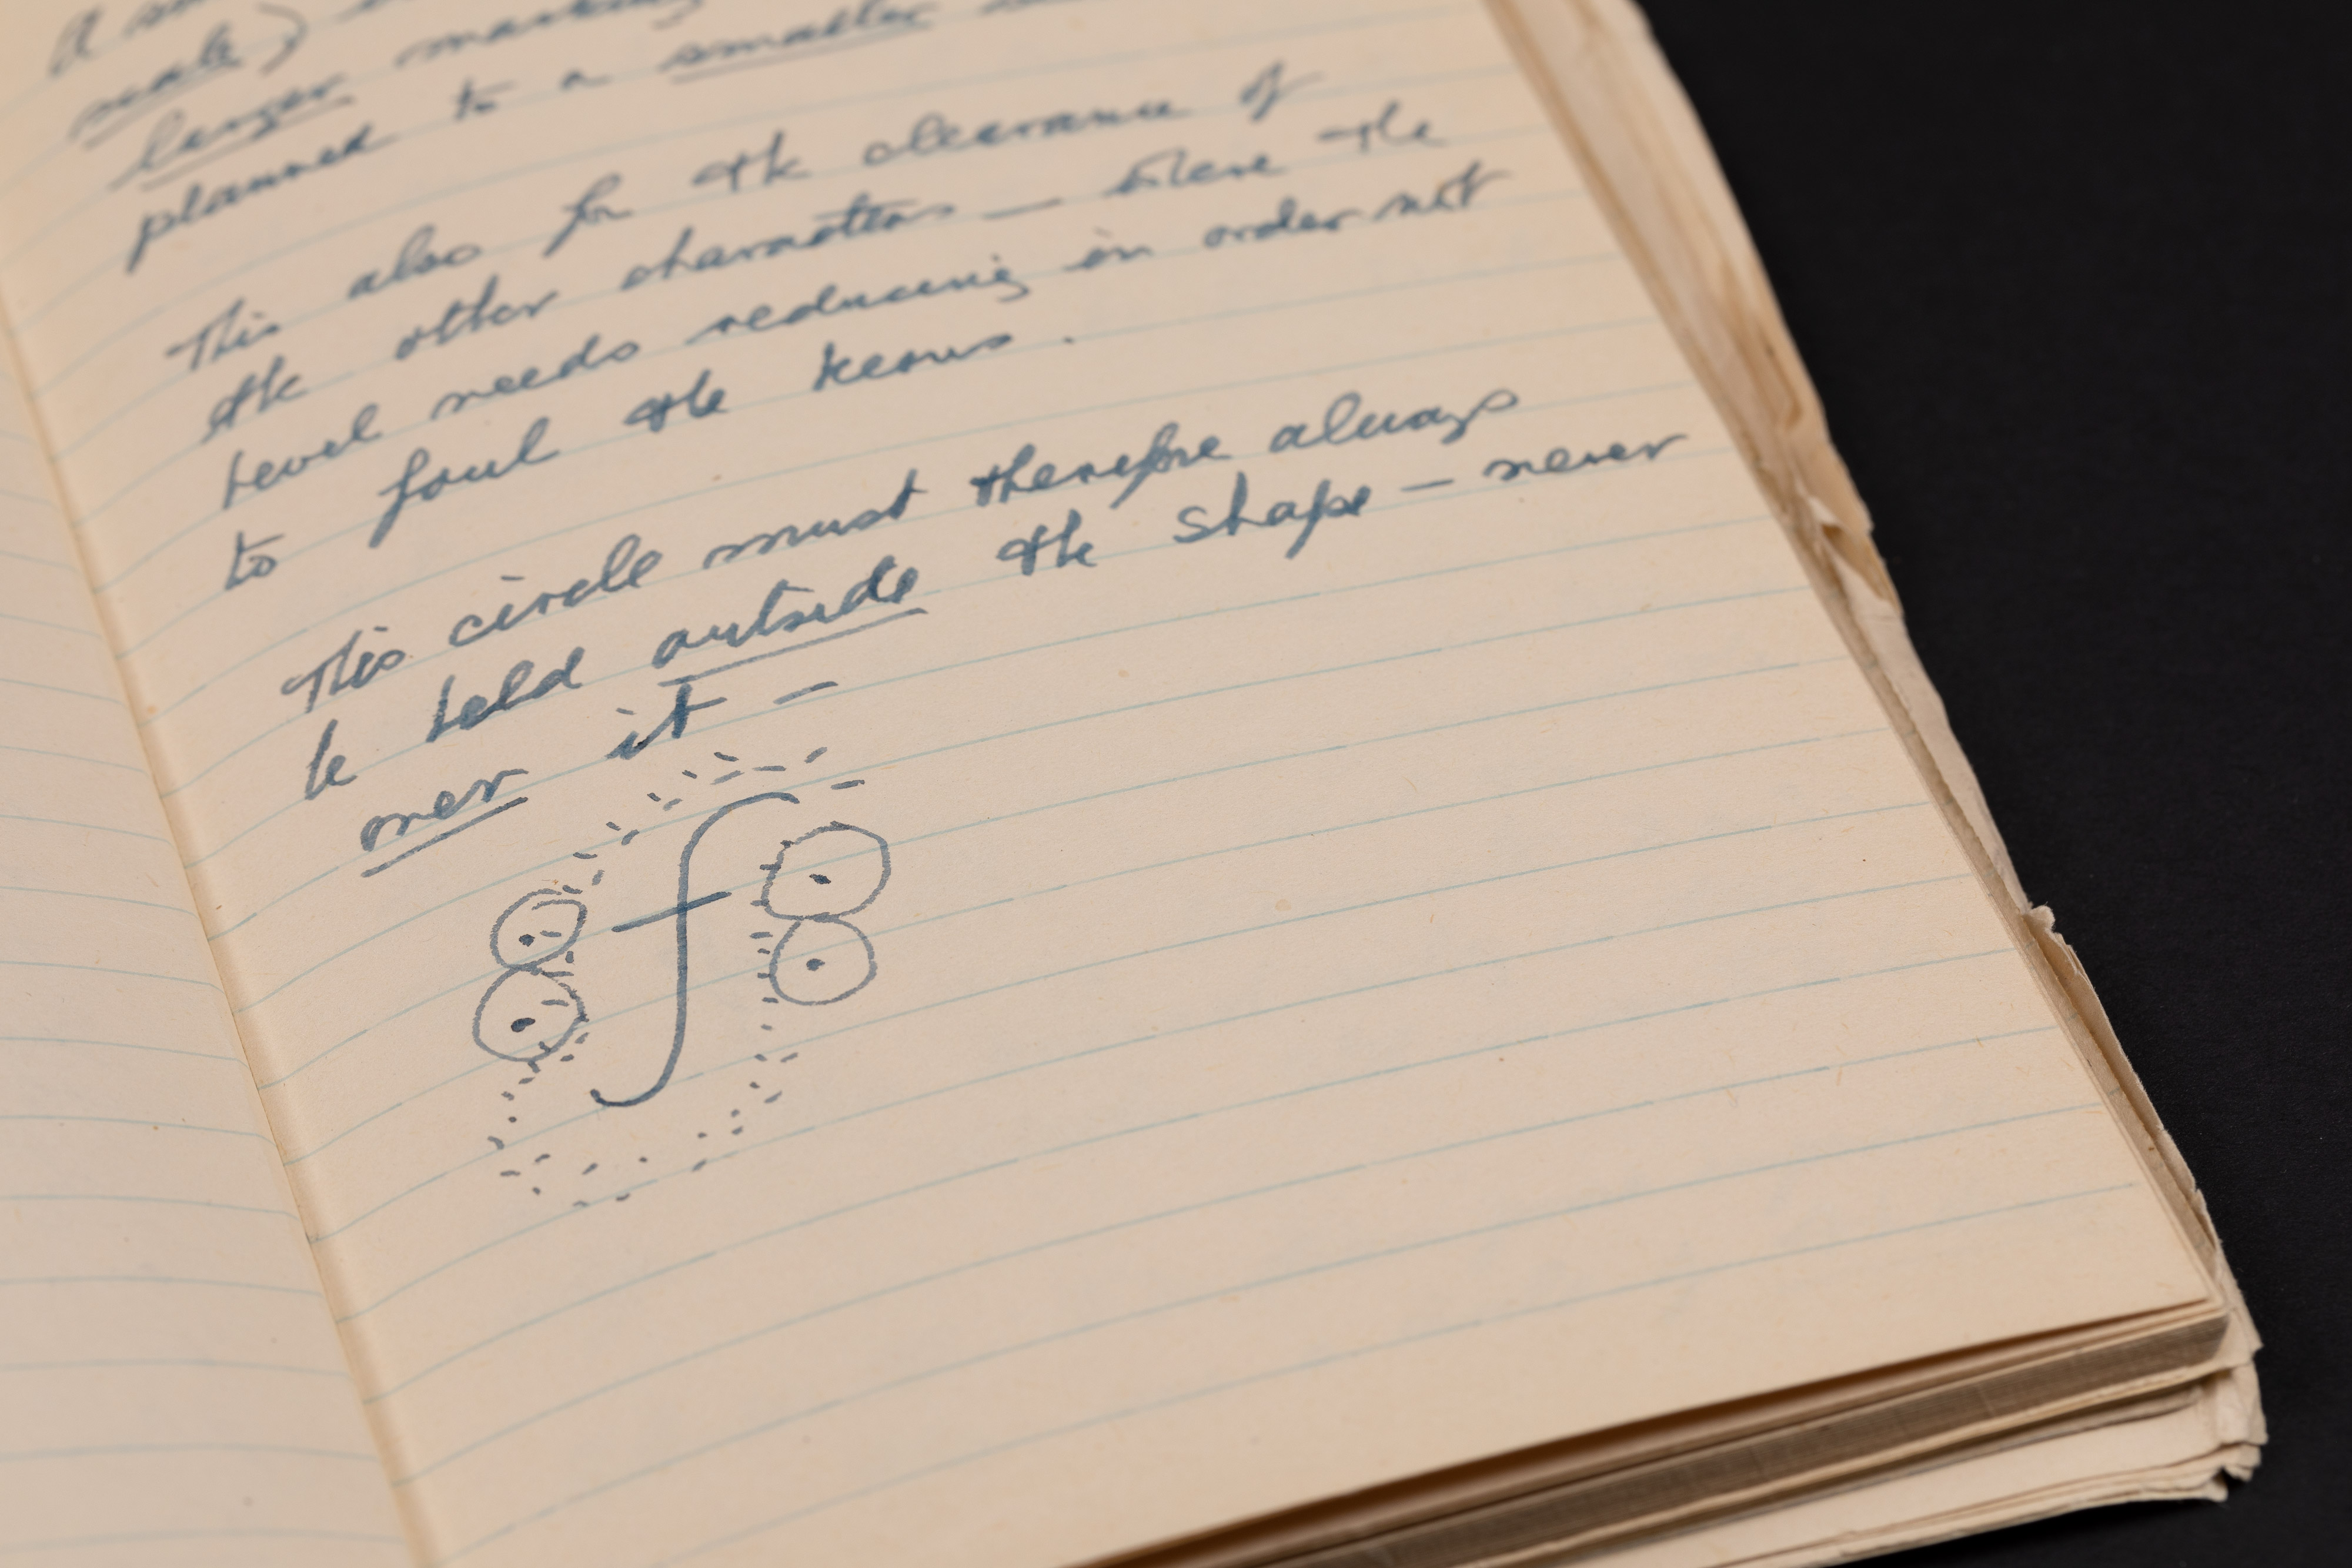 scale)
larger marking
planned to a smaller
This also for the clearance of
the other characters — where the
level needs reducing in order not
to foul the kerns.
This circle must therefore always
be held outside the shape — never
over it —
f